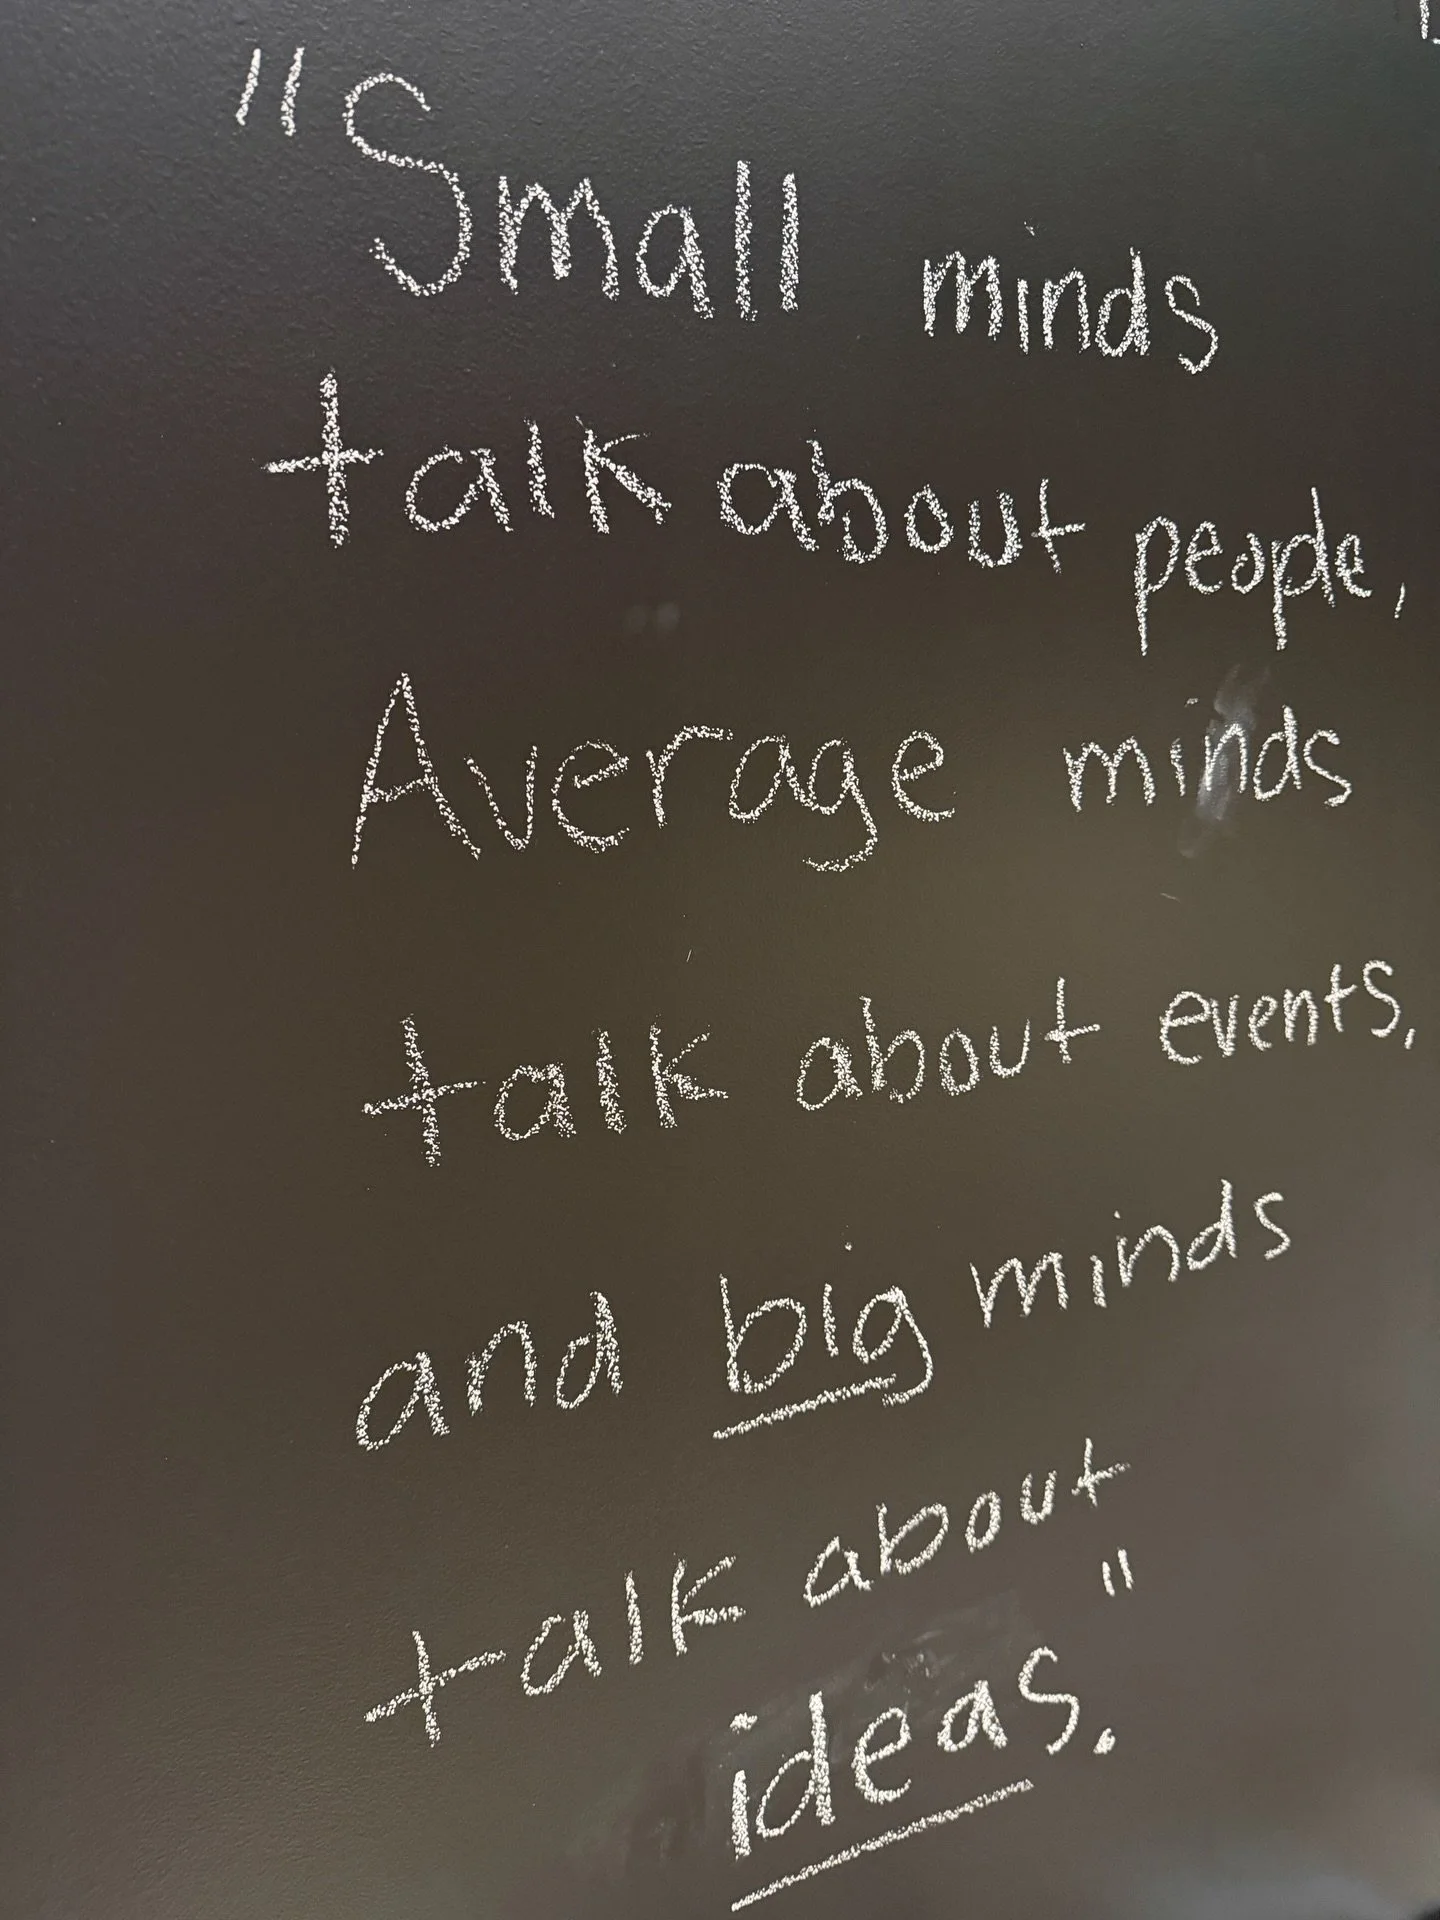 "Small minds
talk about people,
Average minds
talk about events,
and big minds
talk about
ideas."